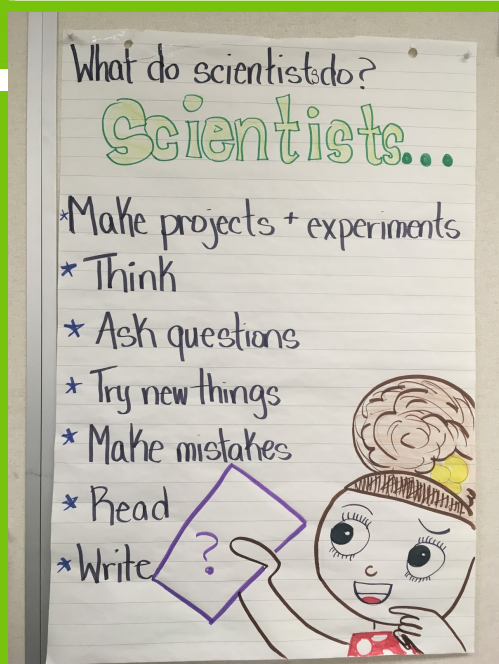 What do scientists do?
Scientists...
*Make projects + experiments
* Think
* Ask questions
* Try new things
* Make mistakes
* Read
* Write
?